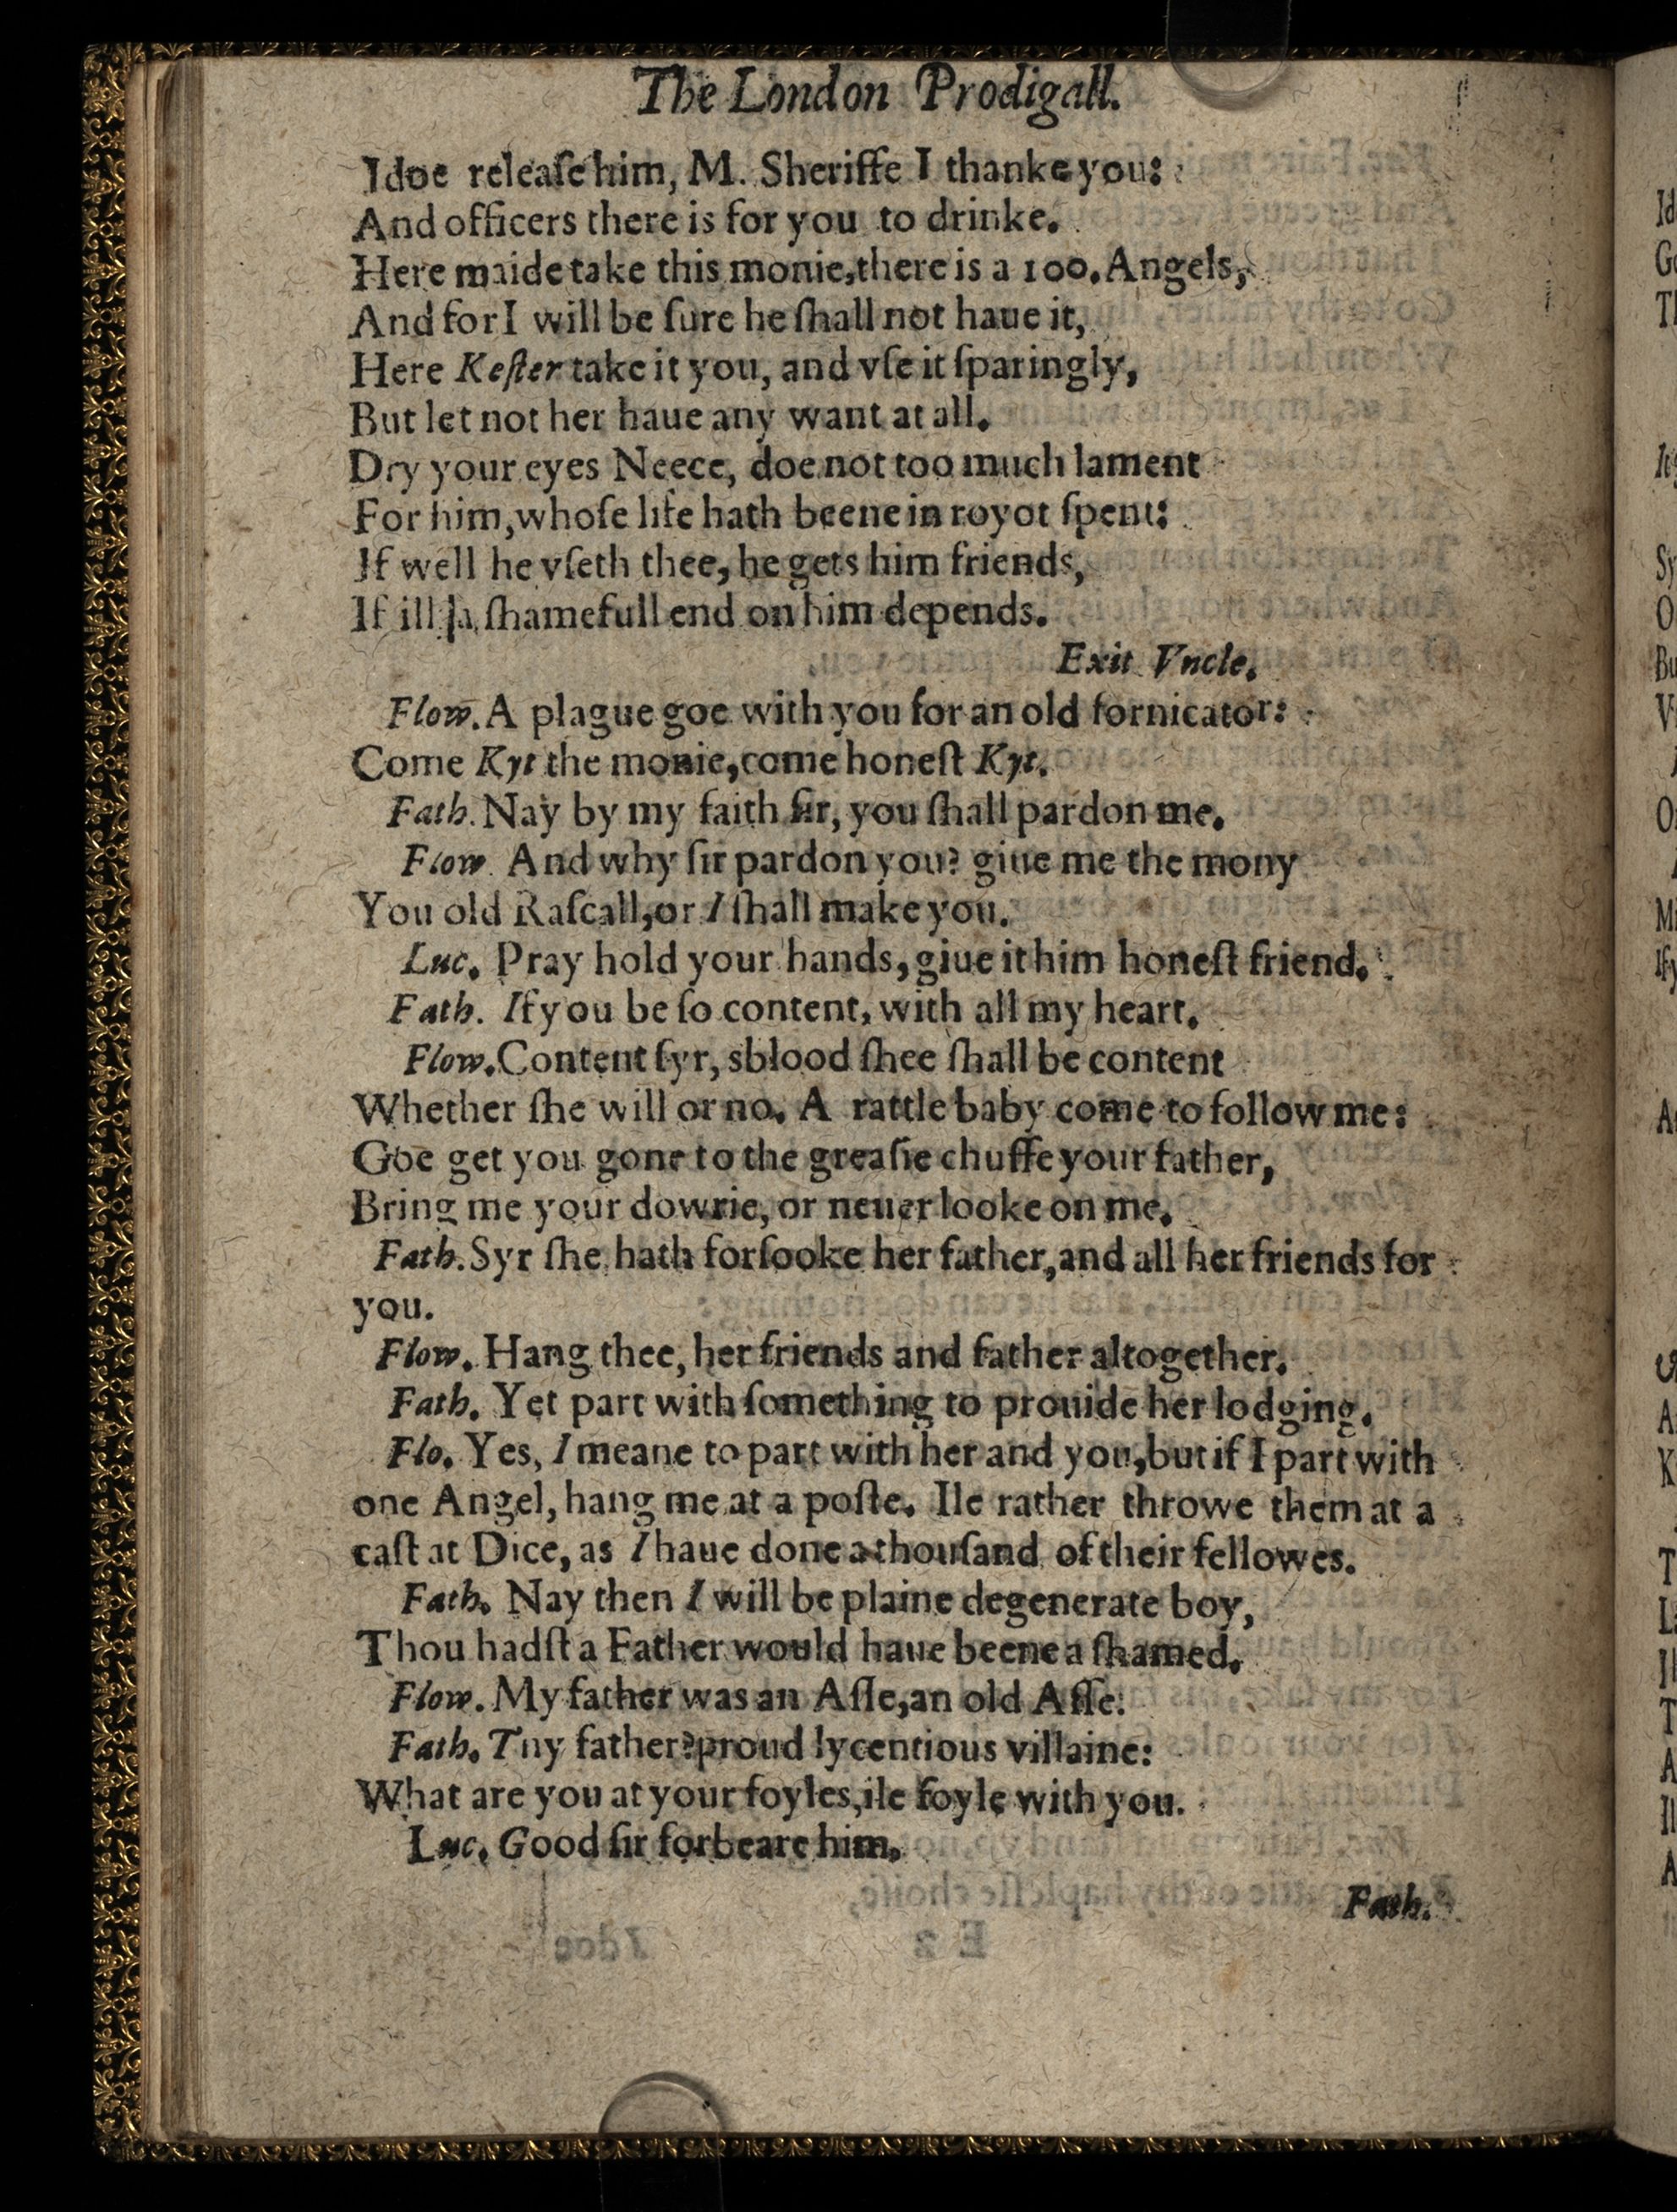 The London Prodigall.
I doe releaſe him, M. Sheriffe I thanke you:
And officers there is for you to drinke.
Here maide take this monie, there is a 100. Angels,
And for I will be ſure he ſhall not haue it,
Here Keſter take it you, and vſe it ſparingly,
But let not her haue any want at all.
Dry your eyes Neece, doe not too much lament
For him, whoſe life hath beene in royot ſpent:
If well he vſeth thee, he gets him friends,
If ill a ſhamefull end on him depends.
Exit Vncle.
Flow. A plague goe with you for an old fornicator:
Come Kyt the monie, come honeſt Kyt.
Fath. Nay by my faith ſir, you ſhall pardon me.
Flow. And why ſir pardon you? giue me the mony
You old Raſcall, or I ſhall make you.
Luc. Pray hold your hands, giue it him honeſt friend.
Fath. If you be ſo content, with all my heart.
Flow. Content ſyr, sblood ſhee ſhall be content
Whether ſhe will or no. A rattle baby come to follow me:
Goe get you gone to the greaſie chuffe your father,
Bring me your dowrie, or neuer looke on me.
Fath. Syr ſhe hath forſooke her father, and all her friends for
you.
Flow. Hang thee, her friends and father altogether.
Fath. Yet part with ſomething to prouide her lodging.
Flo. Yes, I meane to part with her and you, but if I part with
one Angel, hang me at a poſte. Ile rather throwe them at a
caſt at Dice, as I haue done a thouſand of their fellowes.
Fath. Nay then I will be plaine degenerate boy,
Thou hadſt a Father would haue beene a ſhamed.
Flow. My father was an Aſſe, an old Aſſe.
Fath. Thy father? proud lycentious villaine:
What are you at your foyles, ile foyle with you.
Luc. Good ſir forbeare him.
Fath.